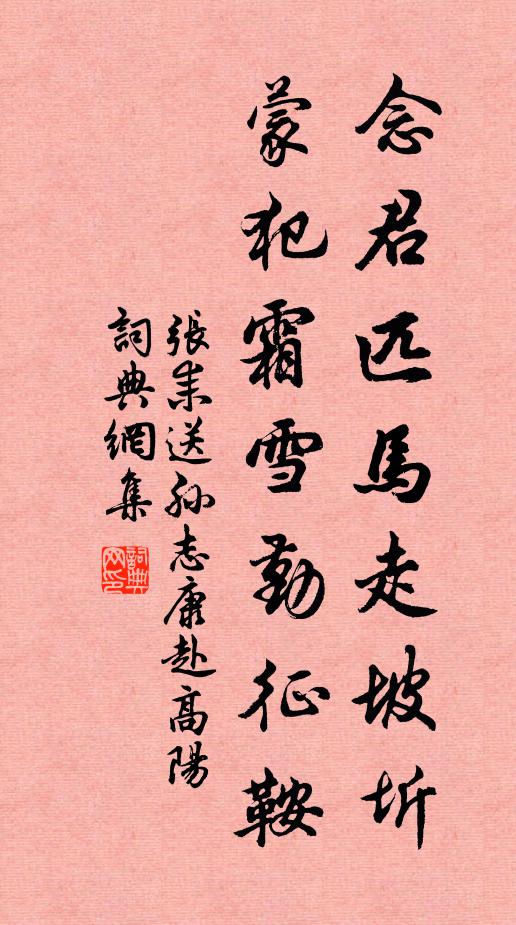 念君匹馬走坡圻
蒙犯霜雪勤征鞍
張耒送孫志康赴高陽
詞典網集
詞典網印